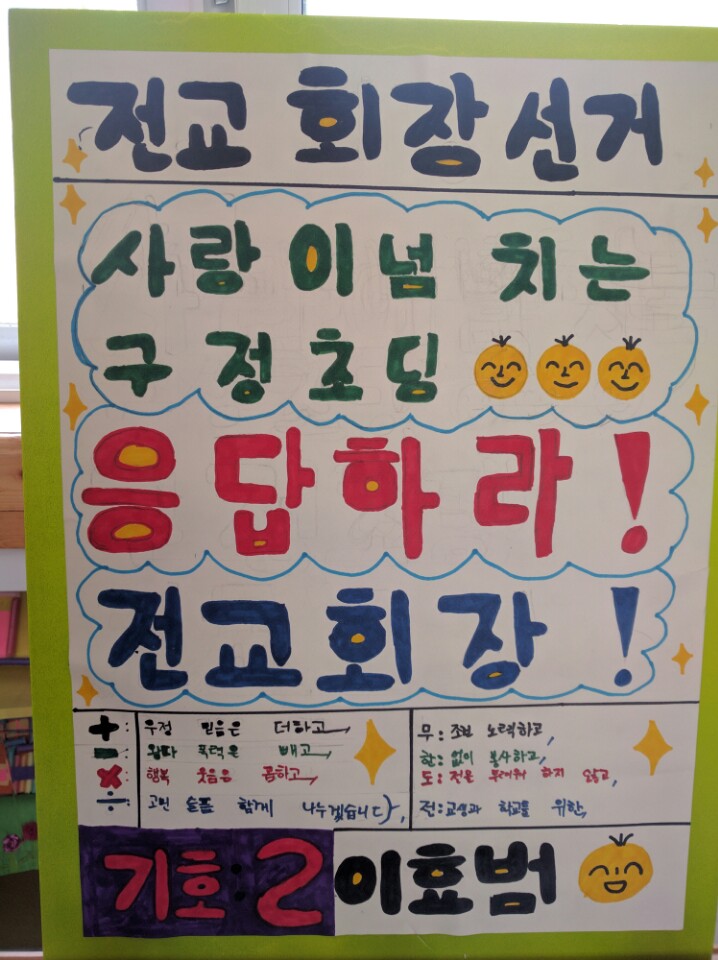 전교 회장 선거
사랑이 넘 치는
구 정초딩
응답하라!
전교회장!
+: 우정 믿음은 더하고,
-: 왕따 폭력은 빼고,
×: 행복 웃음은 곱하고,
÷: 고민 슬픔 함께 나누겠습니다,
무: 조건 노력하고,
한: 없이 봉사하고,
도: 전을 두려워 하지 않고,
전: 교생과 학교를 위한,
기호:2 이효범